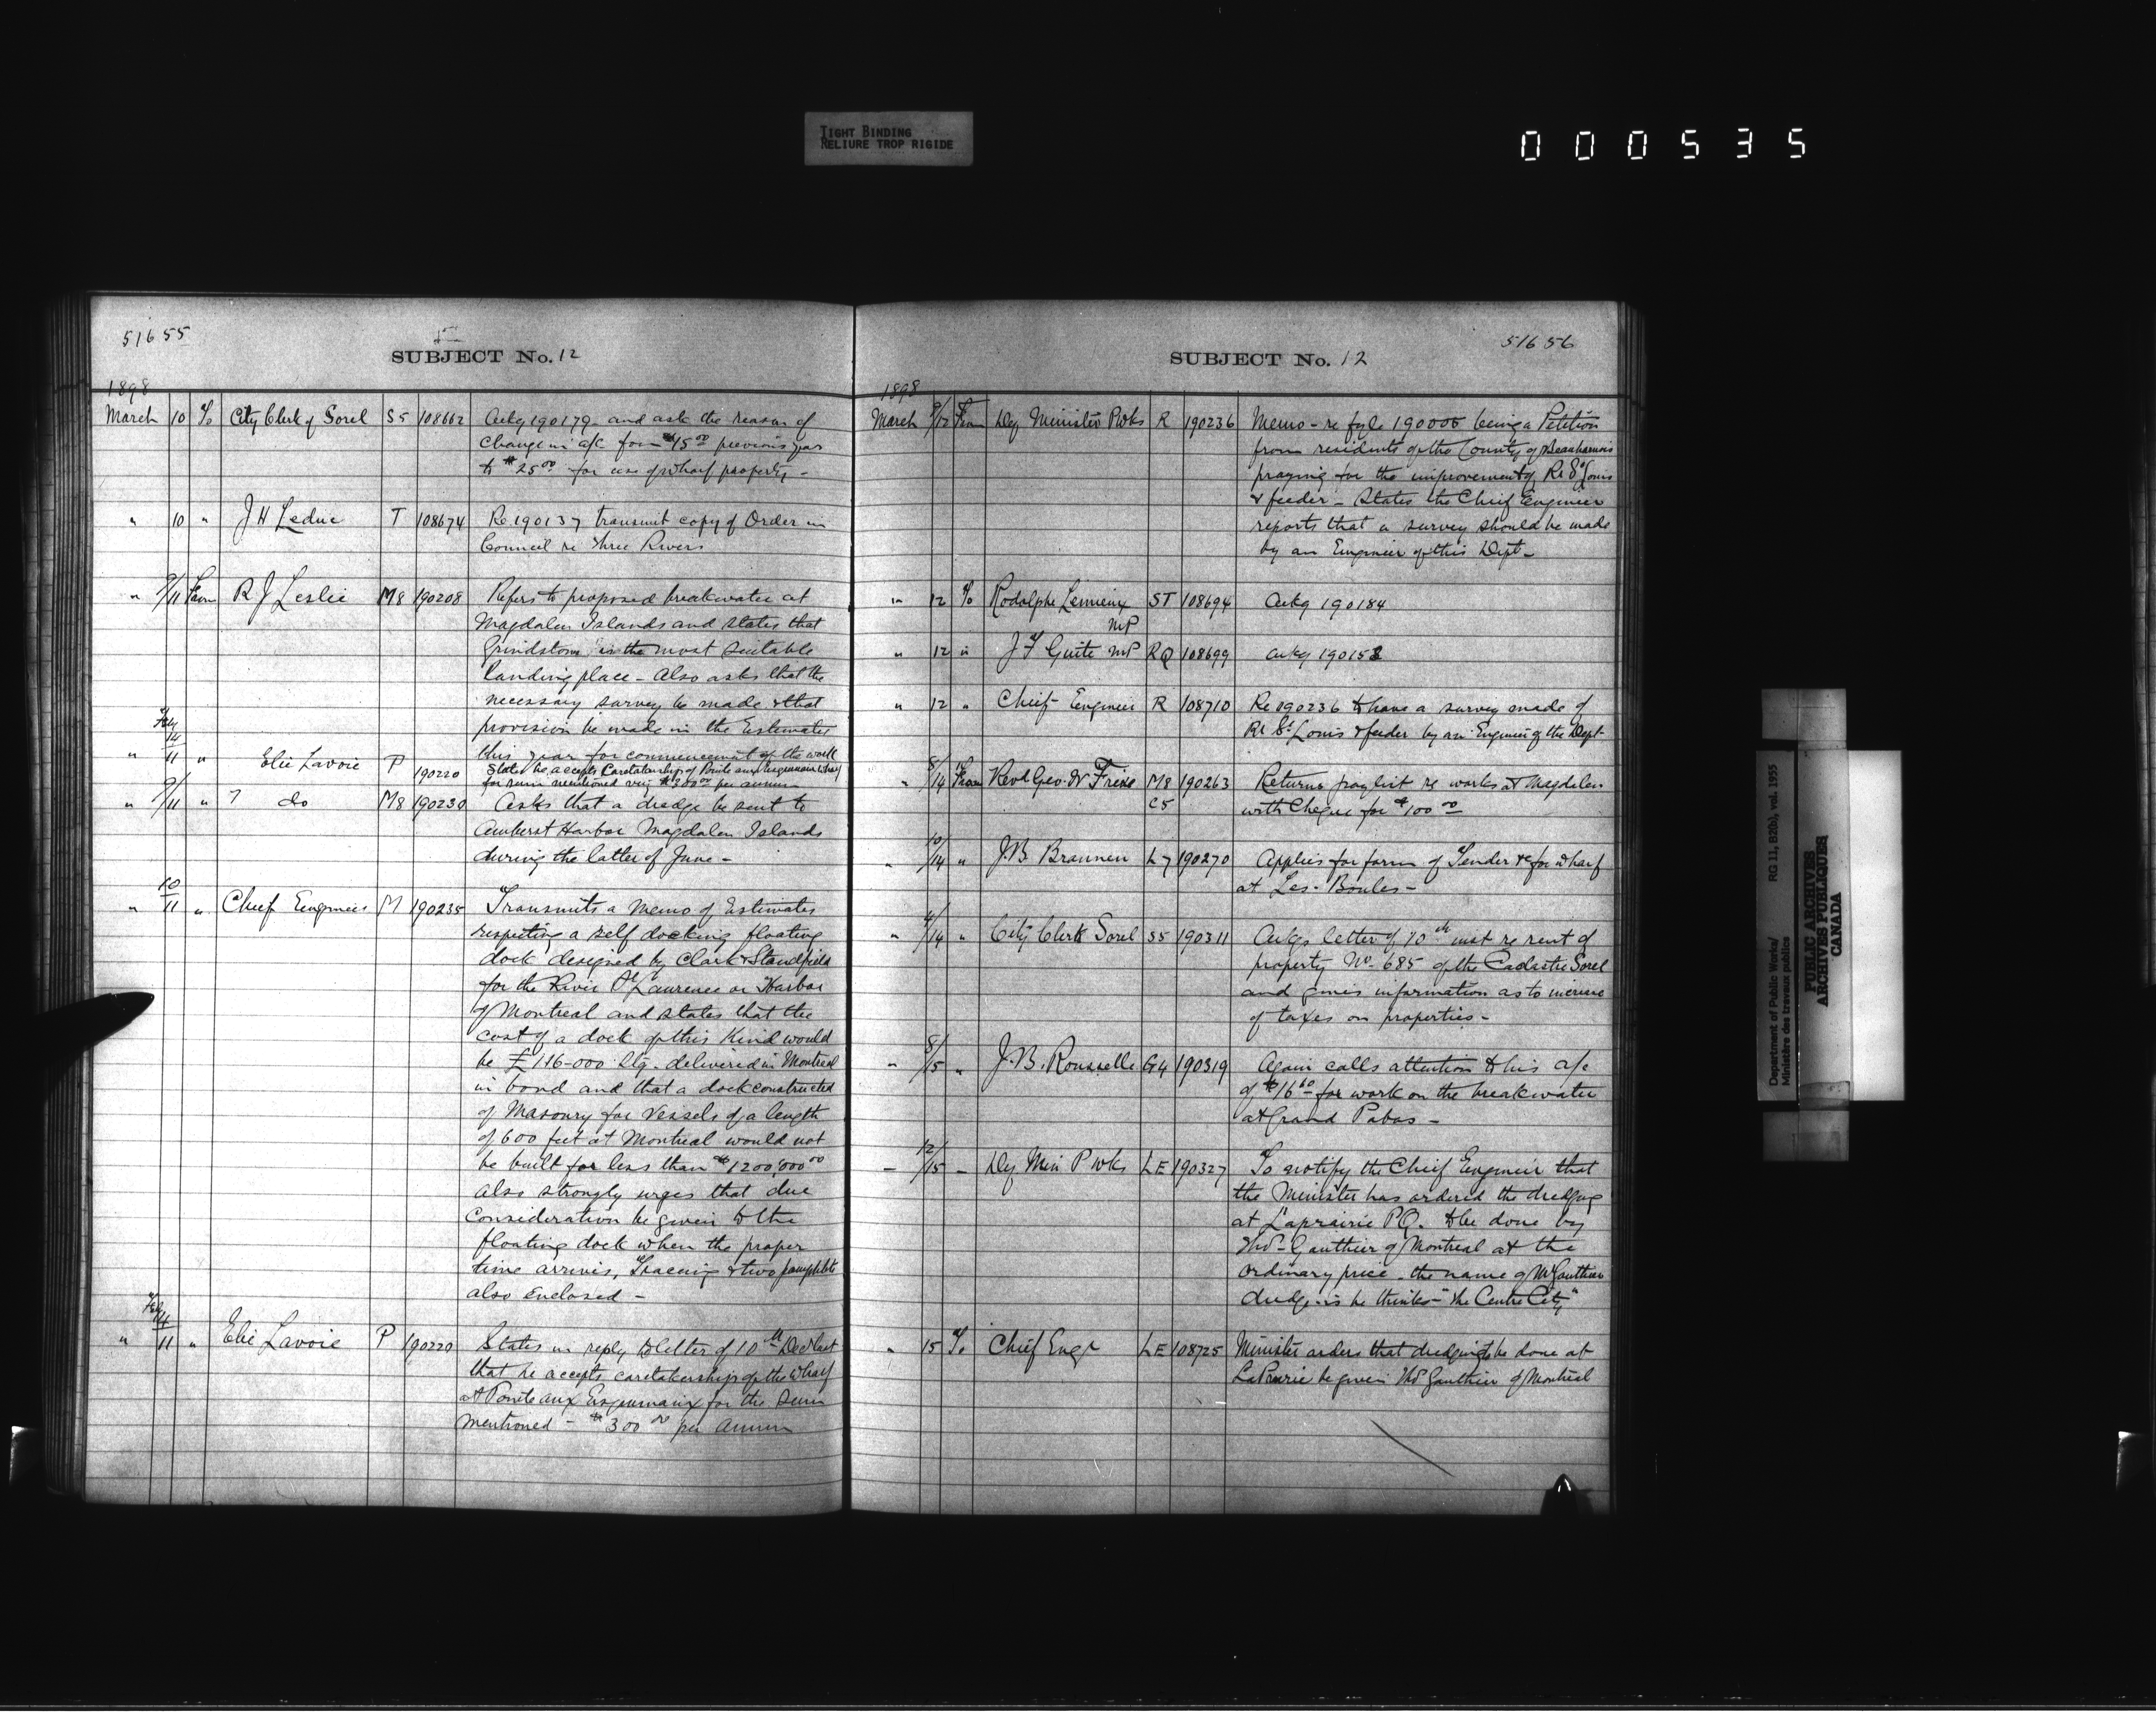 TIGHT BINDING
RELIURE TROP RIGIDE
000535
51655
SUBJECT No. 12
1898
March 10 To City Clerk of Sorel S5 108662 Ackg 190179 and ask the reason of
change in a/c from $15.00 previous year
to $25.00 for use of wharf property -
" 10 " J H Leduc T 108674 Re 190137 transmit copy of Order in
Council re Three Rivers
" 9/11 From R J Leslie M8 190208 Refers to proposed breakwater at
Magdalen Islands and states that
"Grindstone" is the most suitable
landing place - Also asks that the
necessary survey be made & that
provision be made in the Estimates
this year for commencement of the work
" Feby 14/11 " Elie Lavoie P 190220 States he accepts Caretakership of Pointe aux Esquimaux wharf
for sum mentioned viz $300.00 per annum
" 9/11 " do M8 190230 Asks that a dredge be sent to
Amherst Harbor Magdalen Islands
during the latter of June -
" 10/11 " Chief Engineer M 190235 Transmits a Memo of Estimates
respecting a self docking floating
dock designed by Clark & Standfield
for the River St Laurence or Harbor
of Montreal and states that the
cost of a dock of this kind would
be £116-000 Stg. delivered in Montreal
in bond and that a dock constructed
of Masonry for Vessels of a length
of 600 feet at Montreal would not
be built for less than $1200,000.00
Also strongly urges that due
consideration be given to the
floating dock when the proper
time arrives, Tracing & two pamphlets
also Enclosed -
" Feby 14/11 " Elie Lavoie P 190220 States in reply to letter of 10th Decr last
that he accepts caretakership of the wharf
at Pointe aux Esquimaux for the sum
mentioned - $300.00 per annum
51656
SUBJECT No. 12
1898
March 9/12 From Dy Minister P Wks R 190236 Memo - re fyle 190006 being a Petition
from residents of the County of Beauharnois
praying for the improvement of Rr St Louis
& feeder - States the Chief Engineer
reports that a survey should be made
by an Engineer of this Dept -
" 12 To Rodolphe Lemieux MP ST 108694 Ackg 190184
" 12 " J F Guite MP RQ 108699 Ackg 190152
" 12 " Chief Engineer R 108710 Re 190236 to have a survey made of
Rr St Louis & feeder by an Engineer of the Dept -
" 8/14 From Revd Geo. W M8 C5 190263 Returns paylist re works at Magdalen
with Cheque for $100.00
" 10/14 " J.B. Brannen L7 190270 Applies for form of Tender &c for wharf
at Les Boules -
" 4/14 " City Clerk Sorel S5 190311 Ackgs letter of 10th inst re rent of
property No. 685 of the Cadastre Sorel
and gives information as to increase
of taxes on properties -
" 8/15 " J.B. Rousselle G4 190319 Again calls attention to his a/c
of $16.60 for work on the breakwater
at Grand Pabos -
- 12/15 - Dy Min P Wks LE 190327 To notify the Chief Engineer that
the Minister has ordered the dredging
at Laprairie PQ. to be done by
Thos Gauthier of Montreal at the
ordinary price - the name of Mr Gauthier
dredge is he thinks - "The Centre City"
" 15 To Chief Engr LE 108725 Minister orders that dredging to be done at
La Prairie be given Thos Gauthier of Montreal
Department of Public Works/
Ministère des travaux publics
RG 11, B2(b), vol. 1955
PUBLIC ARCHIVES
ARCHIVES PUBLIQUES
CANADA